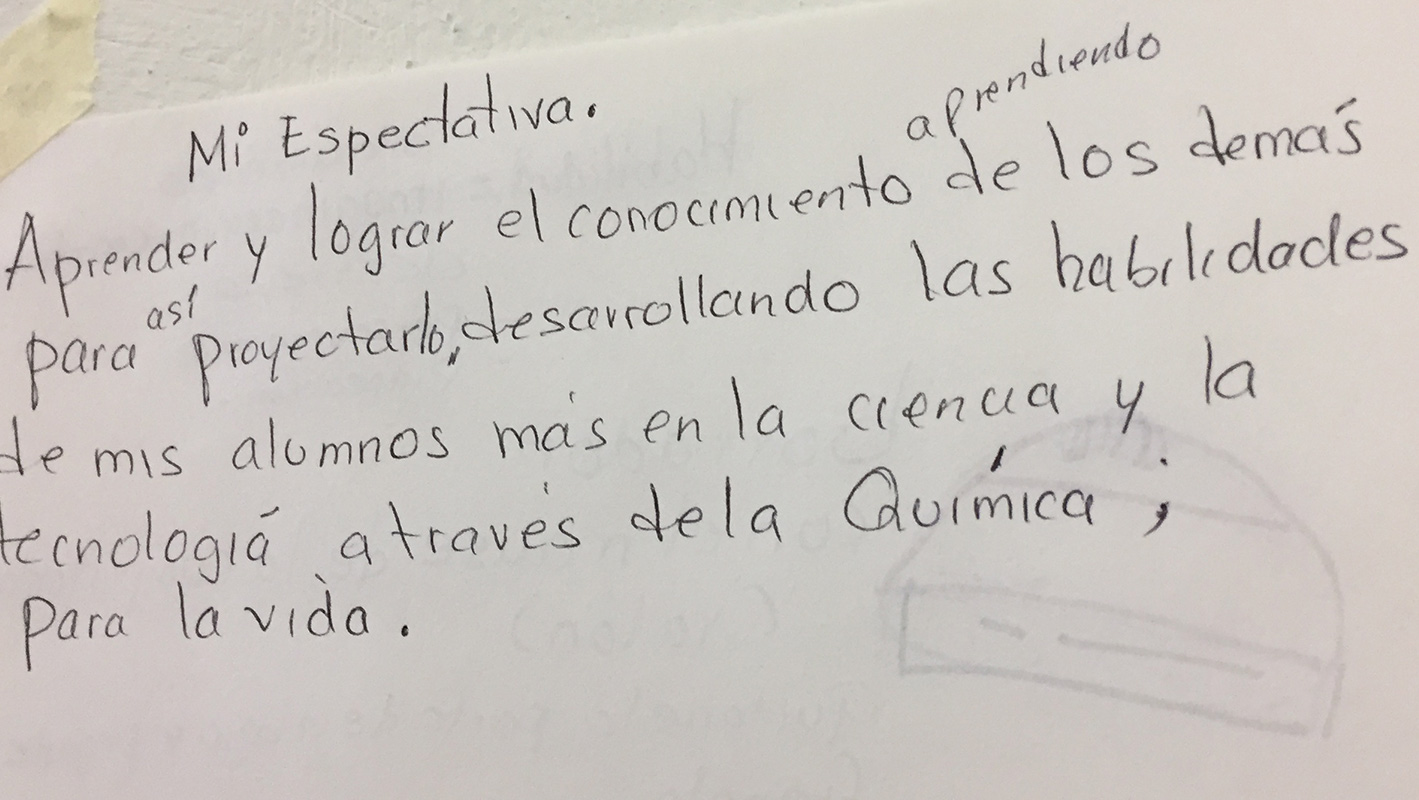 Mi Espectativa.
aprendiendo
Aprender y lograr el conocimiento de los demás
así
para proyectarlo, desarrollando las habilidades
de mis alumnos más en la ciencia y la
tecnología a través de la Química ;
para la vida.